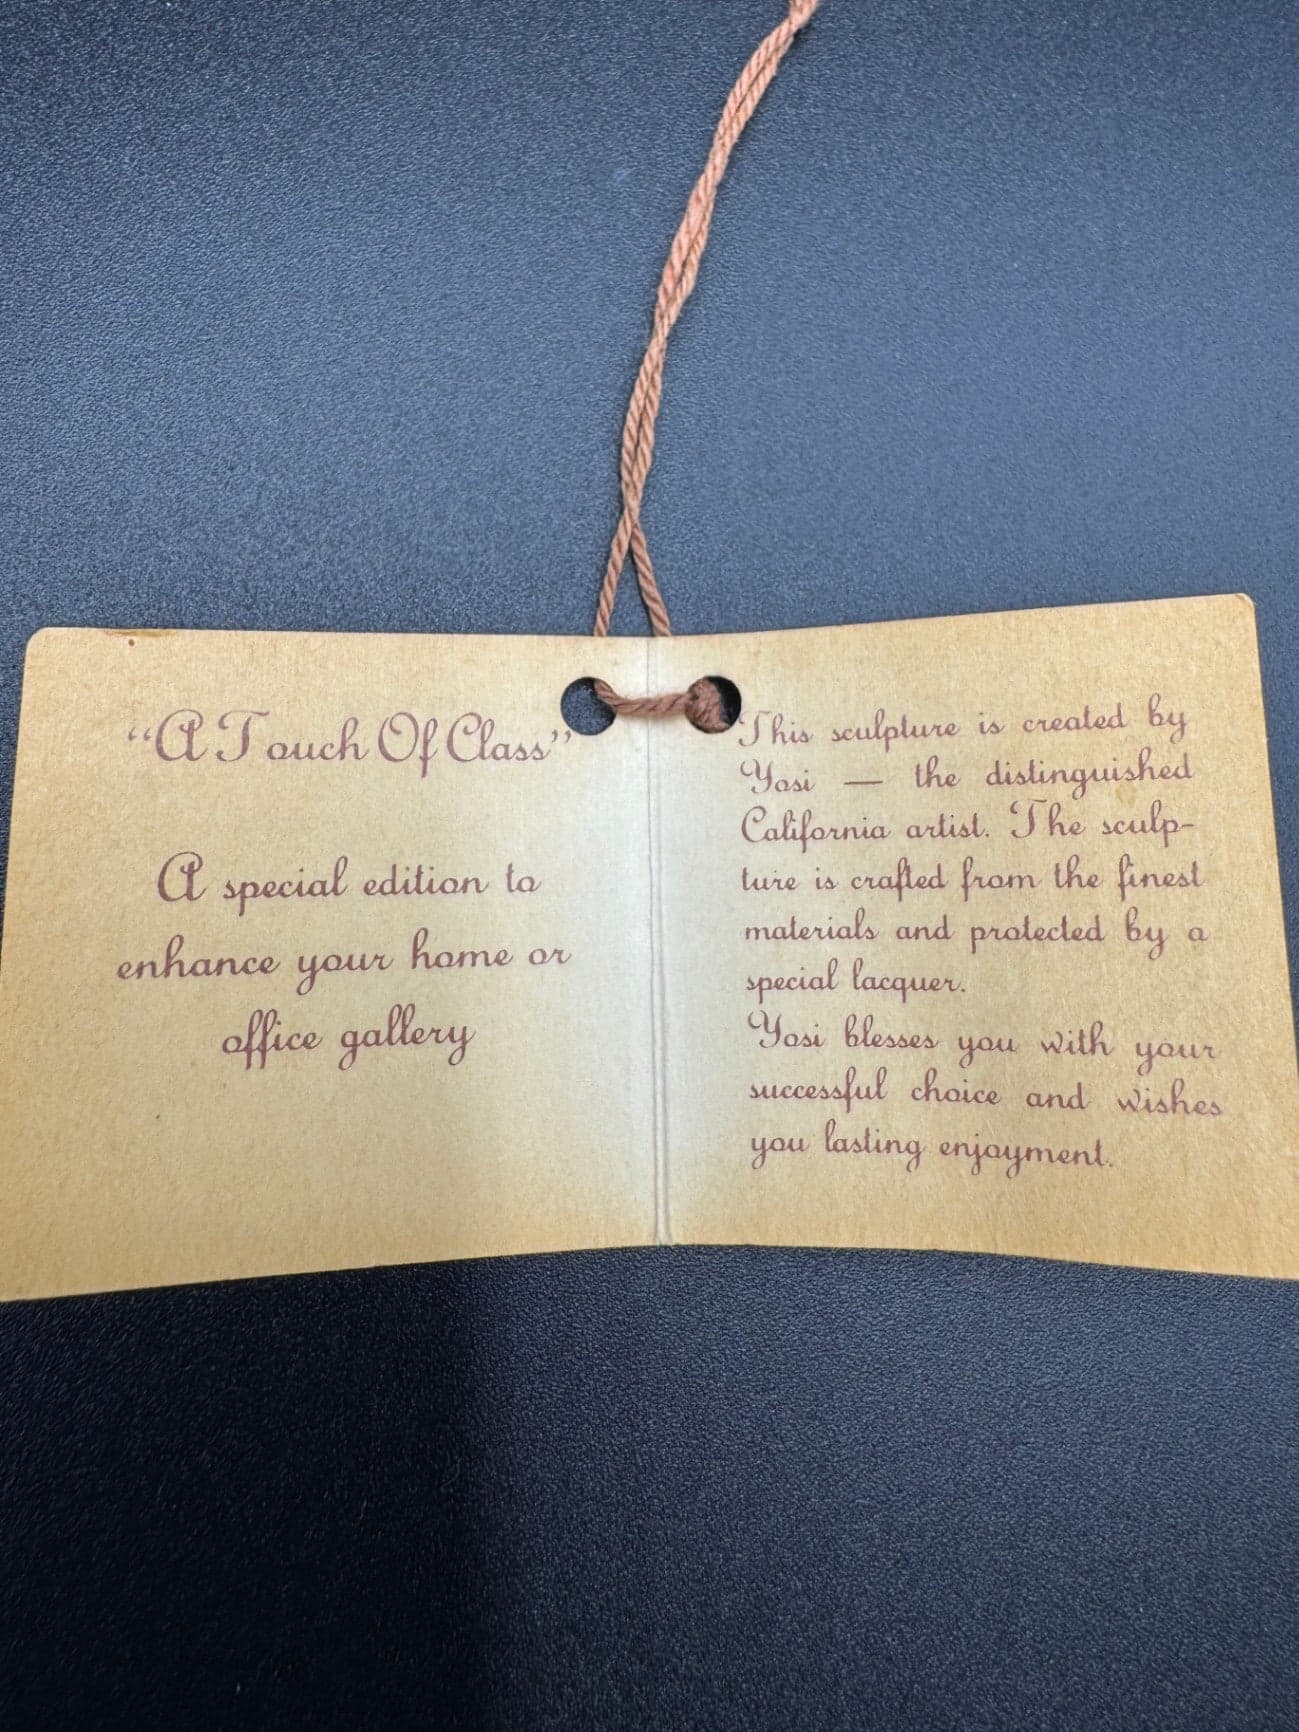 “A Touch Of Class”
A special edition to
enhance your home or
office gallery
This sculpture is created by
Yosi — the distinguished
California artist. The sculp-
ture is crafted from the finest
materials and protected by a
special lacquer.
Yosi blesses you with your
successful choice and wishes
you lasting enjoyment.